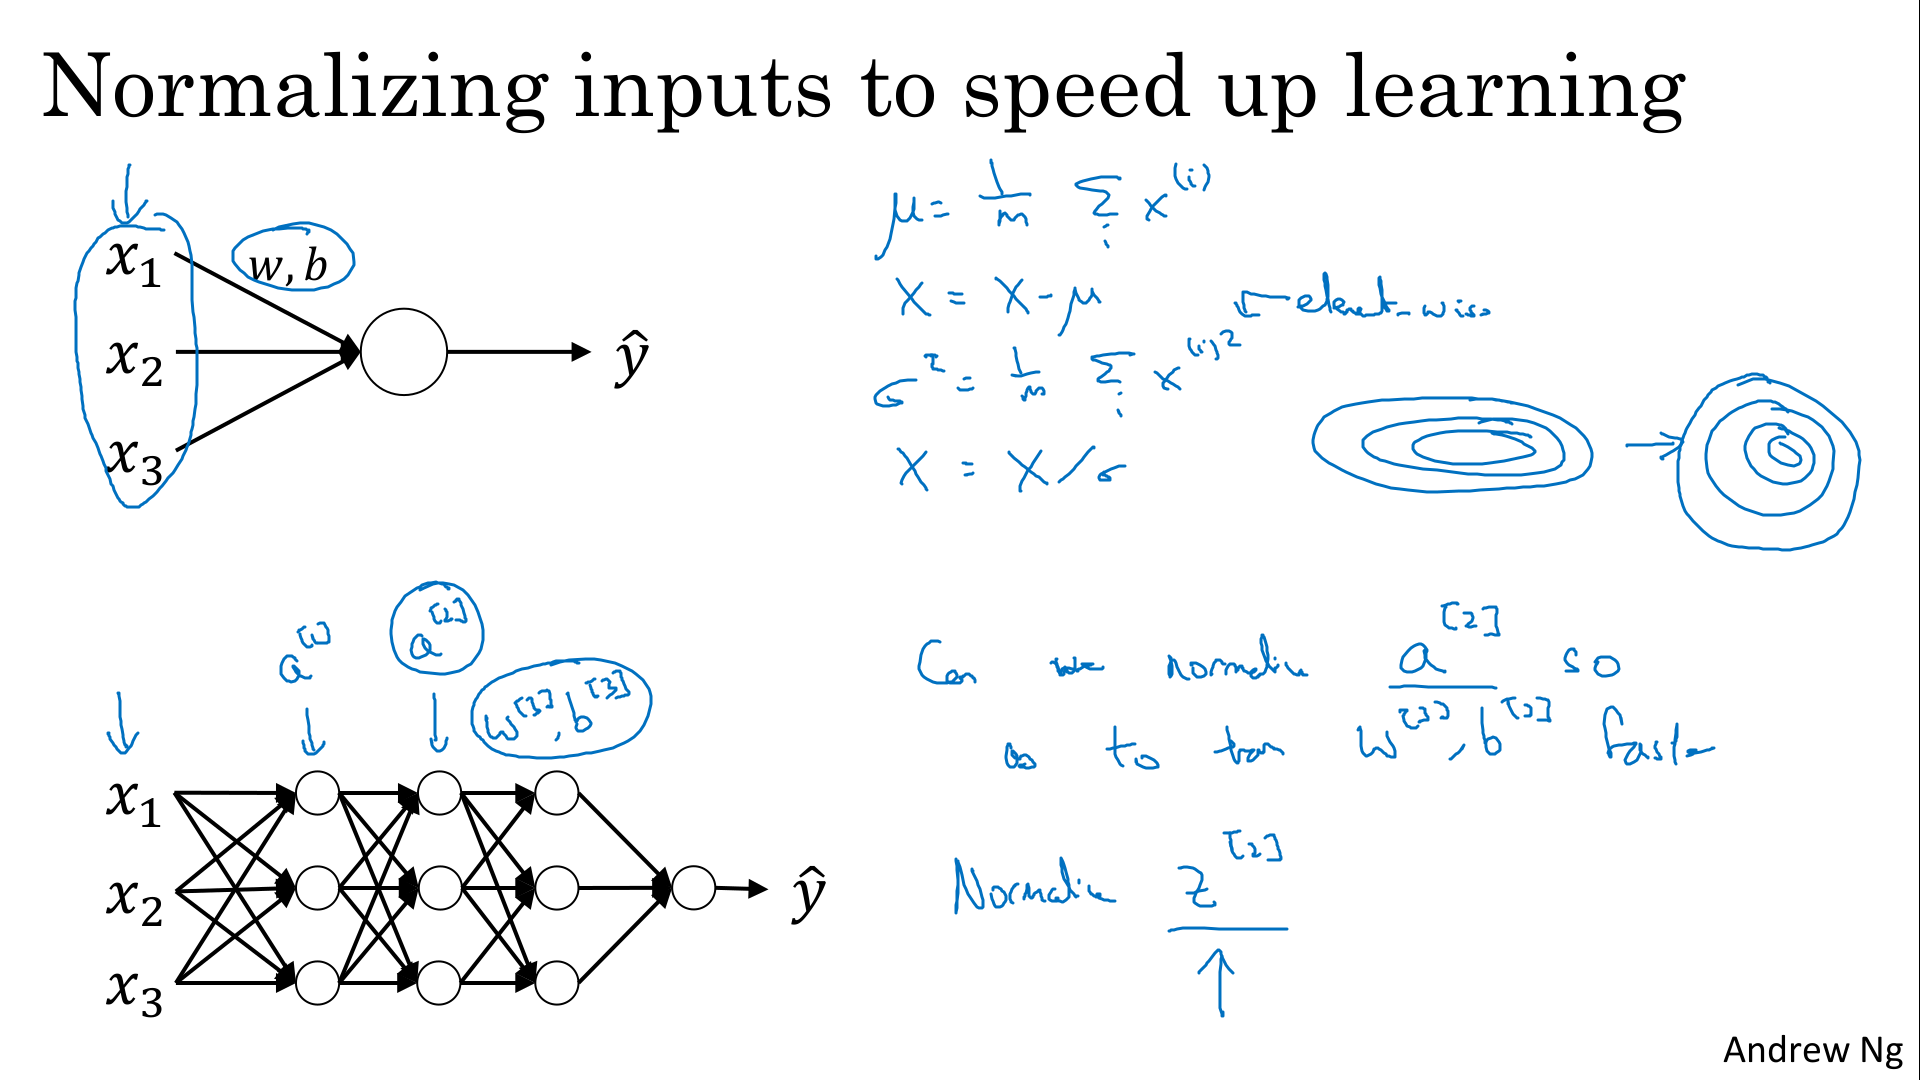 Normalizing inputs to speed up learning
x₁
w, b
x₂
x₃
ŷ
μ = 1/m Σᵢ x⁽ⁱ⁾
X = X - μ
σ² = 1/m Σᵢ x⁽ⁱ⁾² ← element-wise
X = X / σ
a^[1]
a^[2]
w^[3], b^[3]
x₁
x₂
x₃
ŷ
Can we normalize a^[2] so
as to train w^[3], b^[3] faster
Normalize z^[2]
Andrew Ng